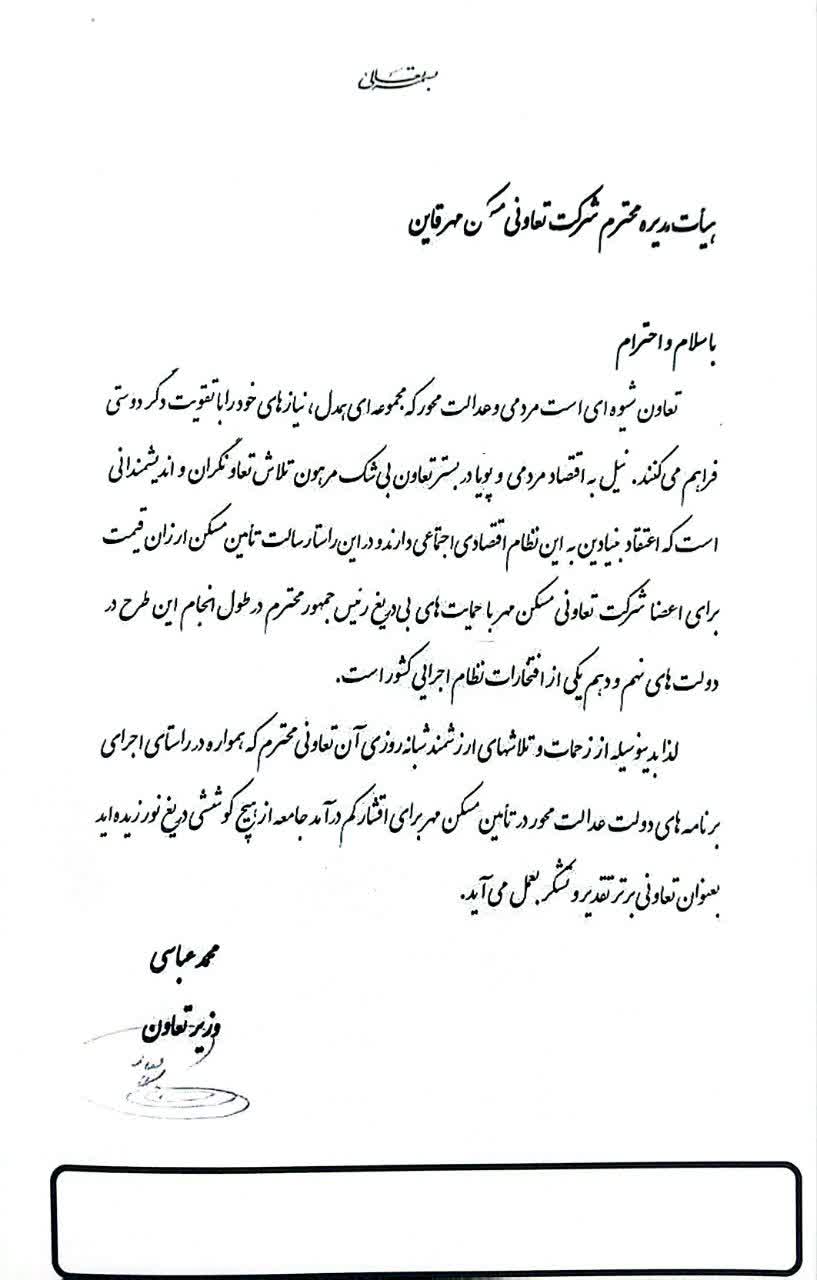 بسمه تعالی
هیأت مدیره محترم شرکت تعاونی مسکن مهر قاین
با سلام و احترام
تعاون شیوه ای است مردمی و عدالت محور که مجموعه ای همدل، نیازهای خود را با تقویت دگر دوستی
فراهم می کنند. نیل به اقتصاد مردمی و پویا در بستر تعاون بی شک مرهون تلاش تعاونگران و اندیشمندانی
است که اعتقاد بنیادین به این نظام اقتصادی اجتماعی دارند و در این راستا رسالت تأمین مسکن ارزان قیمت
برای اعضا شرکت تعاونی مسکن مهر با حمایت های بی دریغ رئیس جمهور محترم در طول انجام این طرح در
دولت های نهم و دهم یکی از افتخارات نظام اجرایی کشور است.
لذا بدینوسیله از زحمات و تلاشهای ارزشمند شبانه روزی آن تعاونی محترم که همواره در راستای اجرای
برنامه های دولت عدالت محور در تأمین مسکن مهر برای اقشار کم درآمد جامعه از هیچ کوششی دریغ نورزیده اید
بعنوان تعاونی برتر تقدیر و تشکر بعمل می آید.
محمد عباسی
وزیر تعاون